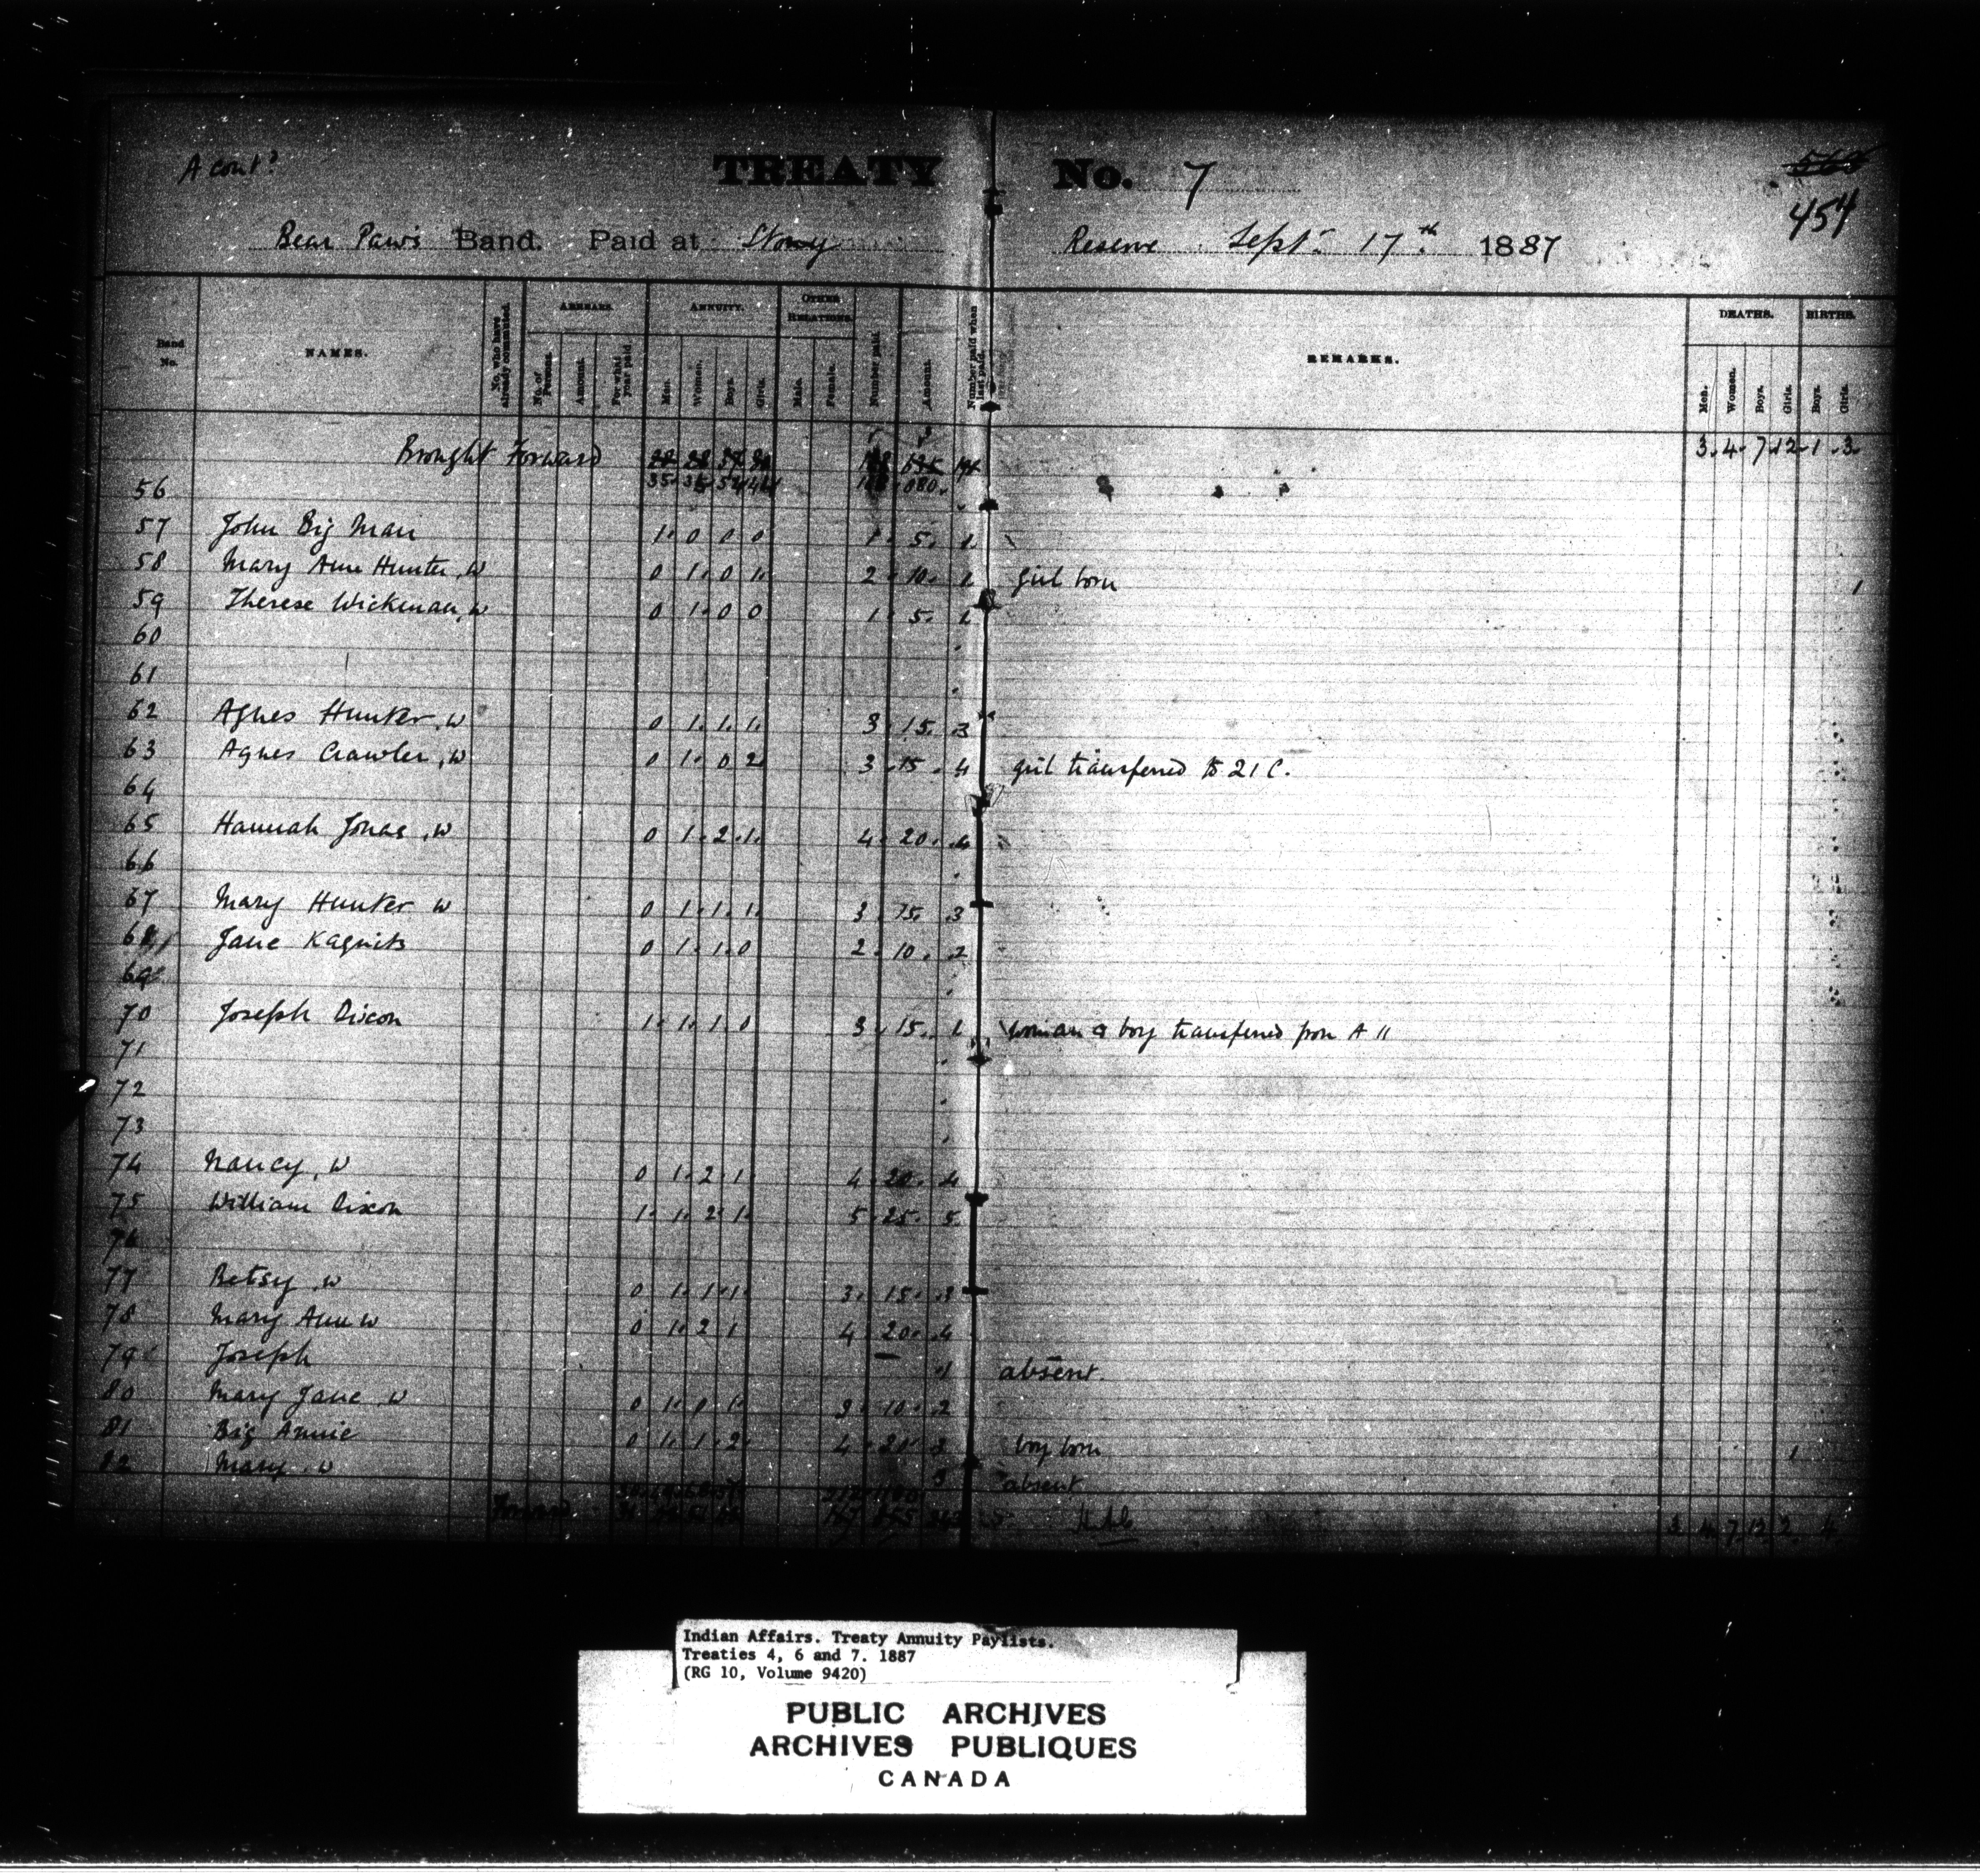 A cont.d
TREATY No. 7
454
Bear Paw's Band. Paid at Stony Reserve Sept. 17th 1887
Band No.
NAMES.
No. who have already commuted.
ARREARS.
No. of Persons.
Amount.
For what year paid.
ANNUITY.
Men.
Women.
Boys.
Girls.
OTHER RELATIONS.
Male.
Female.
Number paid.
Amount.
Number paid when last paid.
REMARKS.
DEATHS.
Men.
Women.
Boys.
Girls.
BIRTHS.
Boys.
Girls.
Brought Forward 3. 4. 7. 12. 1. 3.
56
57 John Big Man 1. 0 0 0 1. 5. 1.
58 Mary Ann Hunter, w 0 1. 0 1. 2. 10. 1. girl born 1
59 Therese Wickman, w 0 1. 0 0 1. 5. 1.
60
61
62 Agnes Hunter, w 0 1. 1. 1. 3. 15. 3
63 Agnes Crawler, w 0 1. 0 2. 3. 15. 4 girl transferred to 21 C.
64
65 Hannah Jonas, w 0 1. 2. 1. 4. 20. 4
66
67 Mary Hunter w 0 1. 1. 1. 3. 15. 3
68 Jane 0 1. 1. 0 2. 10. 2
69
70 Joseph Dixon 1. 1. 1. 0 3. 15. 1. woman & boy transferred from A 11
71
72
73
74 Nancy, w 0 1. 2. 1. 4. 20. 4
75 William Dixon 1. 1. 2. 1. 5. 25. 5.
76
77 Betsy, w 0 1. 1. 1. 3. 15. 3
78 Mary Ann w 0 1. 2. 1 4. 20. 4
79 Joseph 1 absent.
80 Mary Jane w 0 1. 0 1. 2. 10. 2
81 Big Annie 0 1. 1. 2. 4. 20. 3 boy born 1
82 Mary, w 3 absent
Forward 3. 4. 7. 12. 2. 4.
Indian Affairs. Treaty Annuity Paylists.
Treaties 4, 6 and 7. 1887
(RG 10, Volume 9420)
PUBLIC ARCHIVES
ARCHIVES PUBLIQUES
CANADA